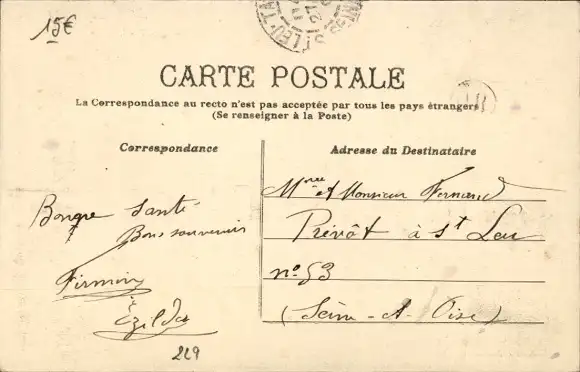 15€
ST LEU-TA
27
CARTE POSTALE
La Correspondance au recto n'est pas acceptée par tous les pays étrangers
(Se renseigner à la Poste)
Correspondance
Adresse du Destinataire
Bonne Santé
Bons souvenirs
Firmin
Ezilda
229
Mme et Monsieur Fernand
Prévôt à St Leu
no 53
(Seine-et-Oise)